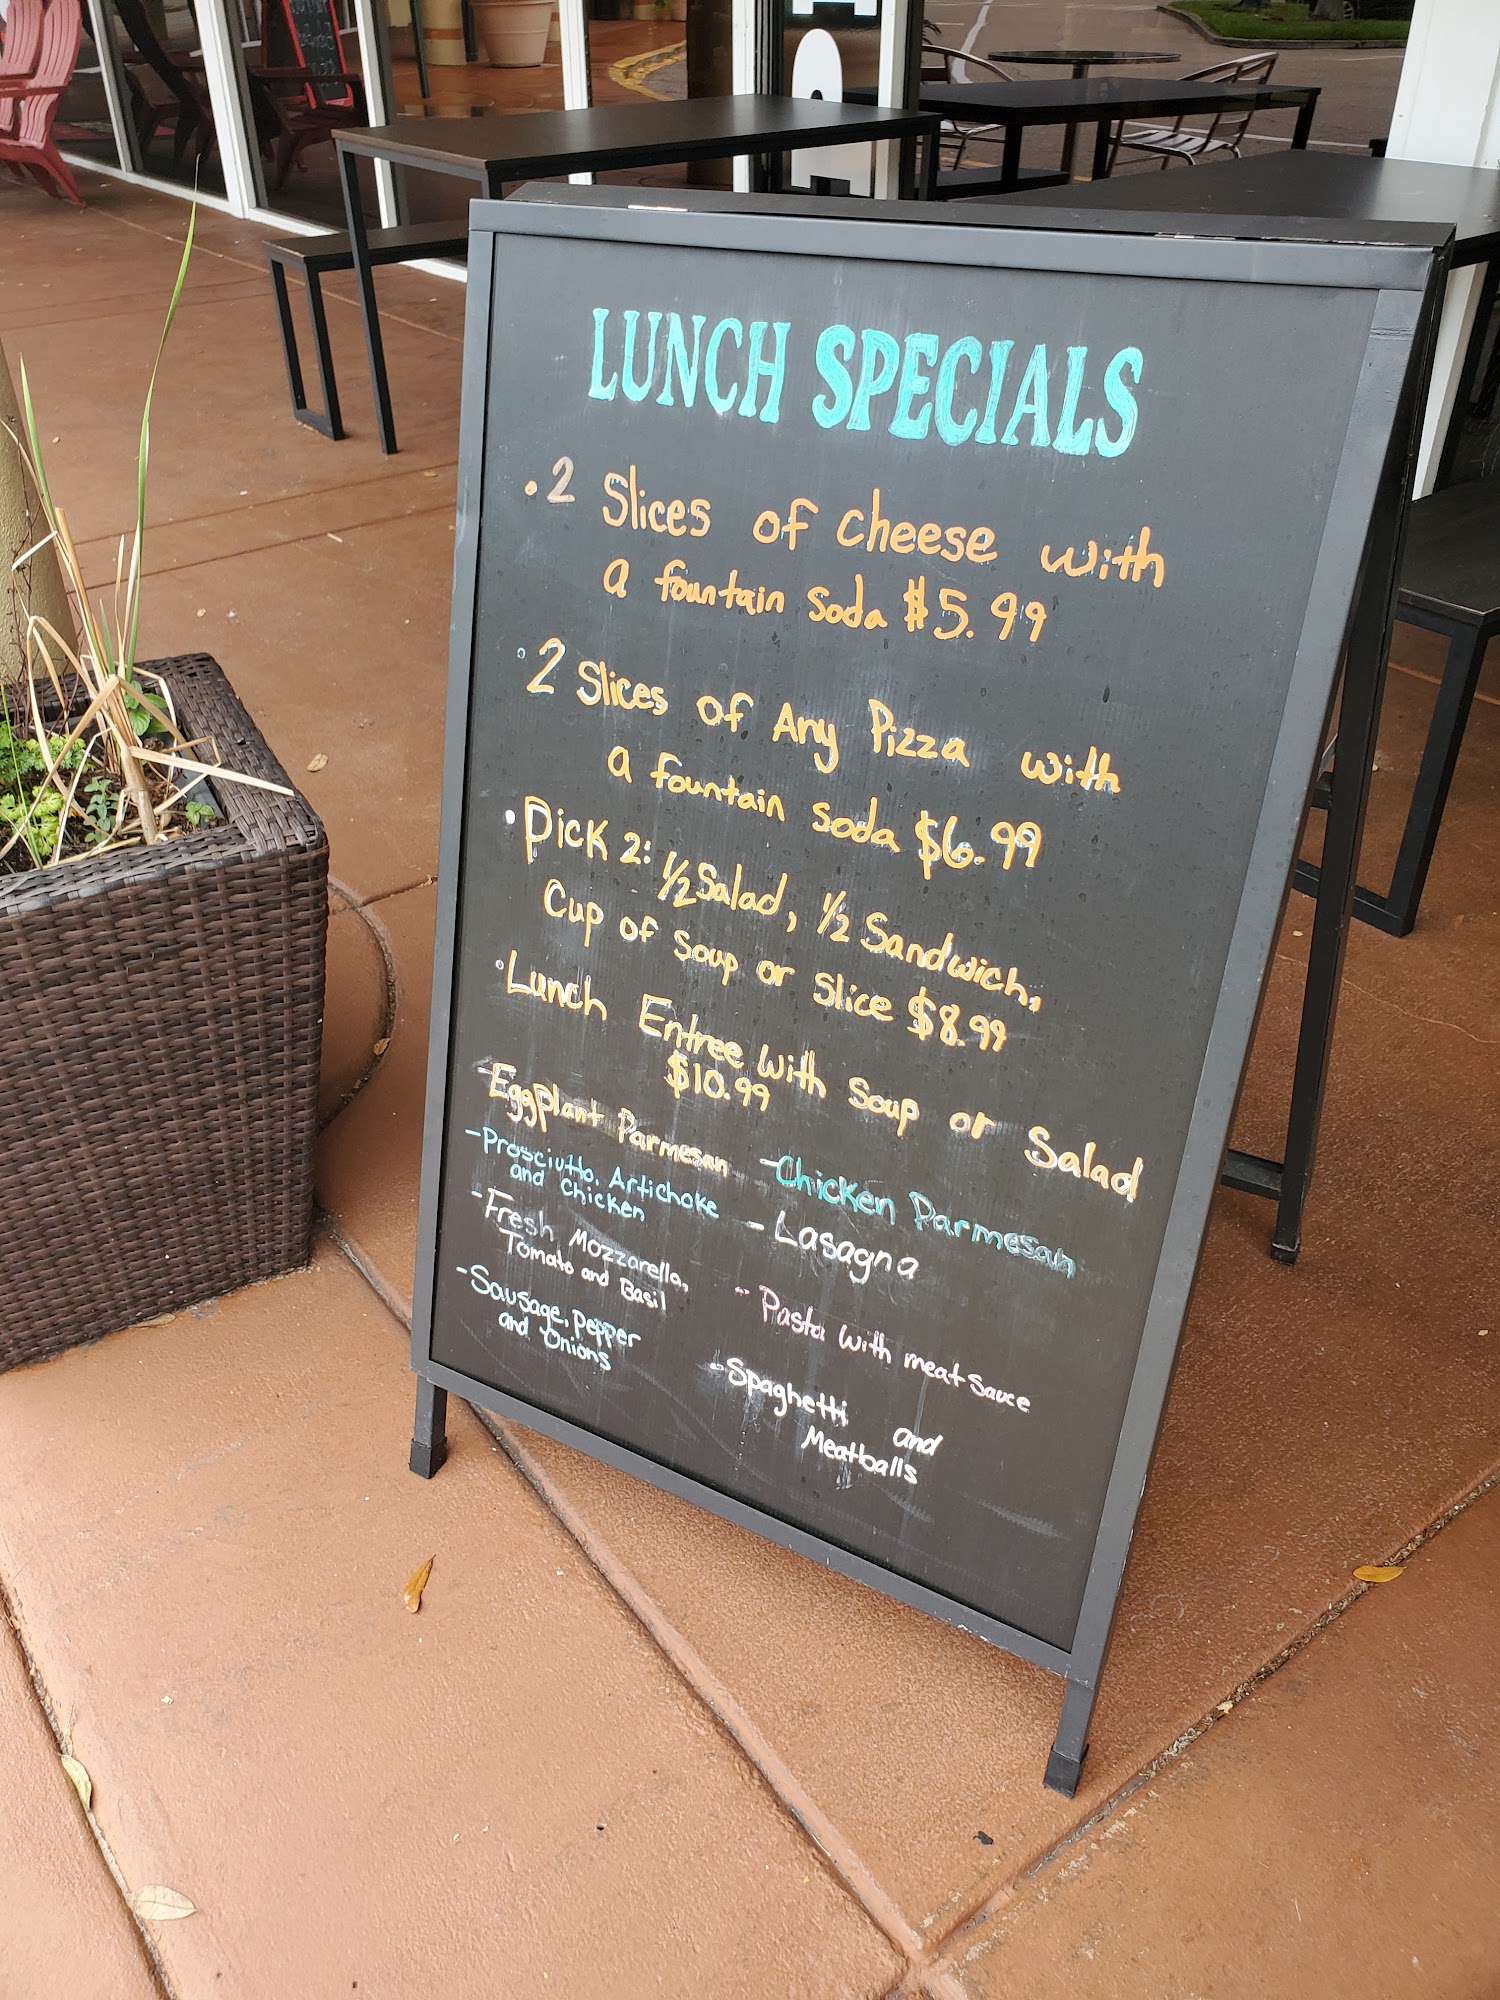 LUNCH SPECIALS
. 2 Slices of cheese with
a fountain soda $5.99
. 2 Slices of Any Pizza with
a fountain soda $6.99
. Pick 2: 1/2 Salad, 1/2 Sandwich,
Cup of soup or slice $8.99
. Lunch Entree with Soup or Salad
$10.99
- Eggplant Parmesan
- Prosciutto, Artichoke
and Chicken
- Fresh Mozzarella,
Tomato and Basil
- Sausage, Pepper
and Onions
- Chicken Parmesan
- Lasagna
- Pasta with meat sauce
- Spaghetti and
Meatballs